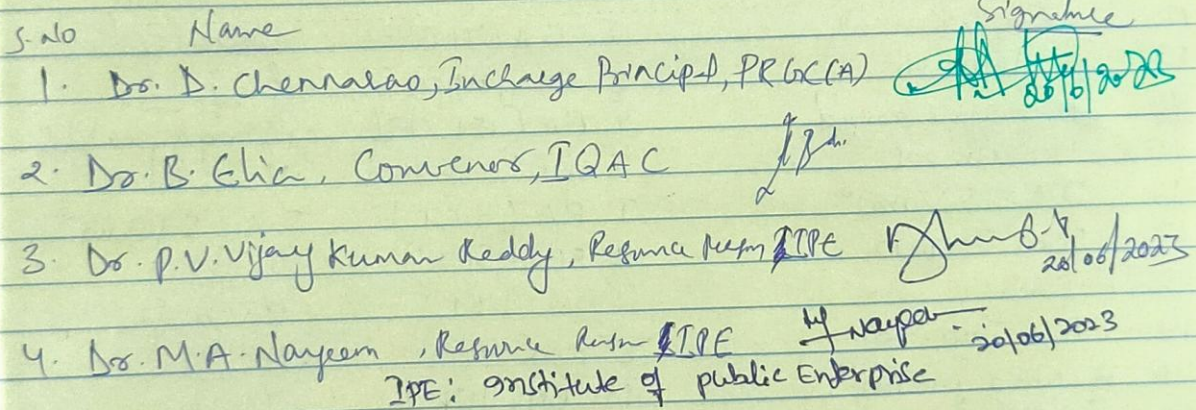 S.No Name Signature
1. Dr. D. Chennarao, Incharge Principal, PRGC(A) 20/6/2023
2. Dr. B. Elia, Convenor, IQAC
3. Dr. P.V. Vijay Kumar Reddy, Resource Person IPE 20/06/2023
4. Dr. M.A. Nayeem, Resource Person IPE Nayeem 20/06/2023
IPE: Institute of public Enterprise